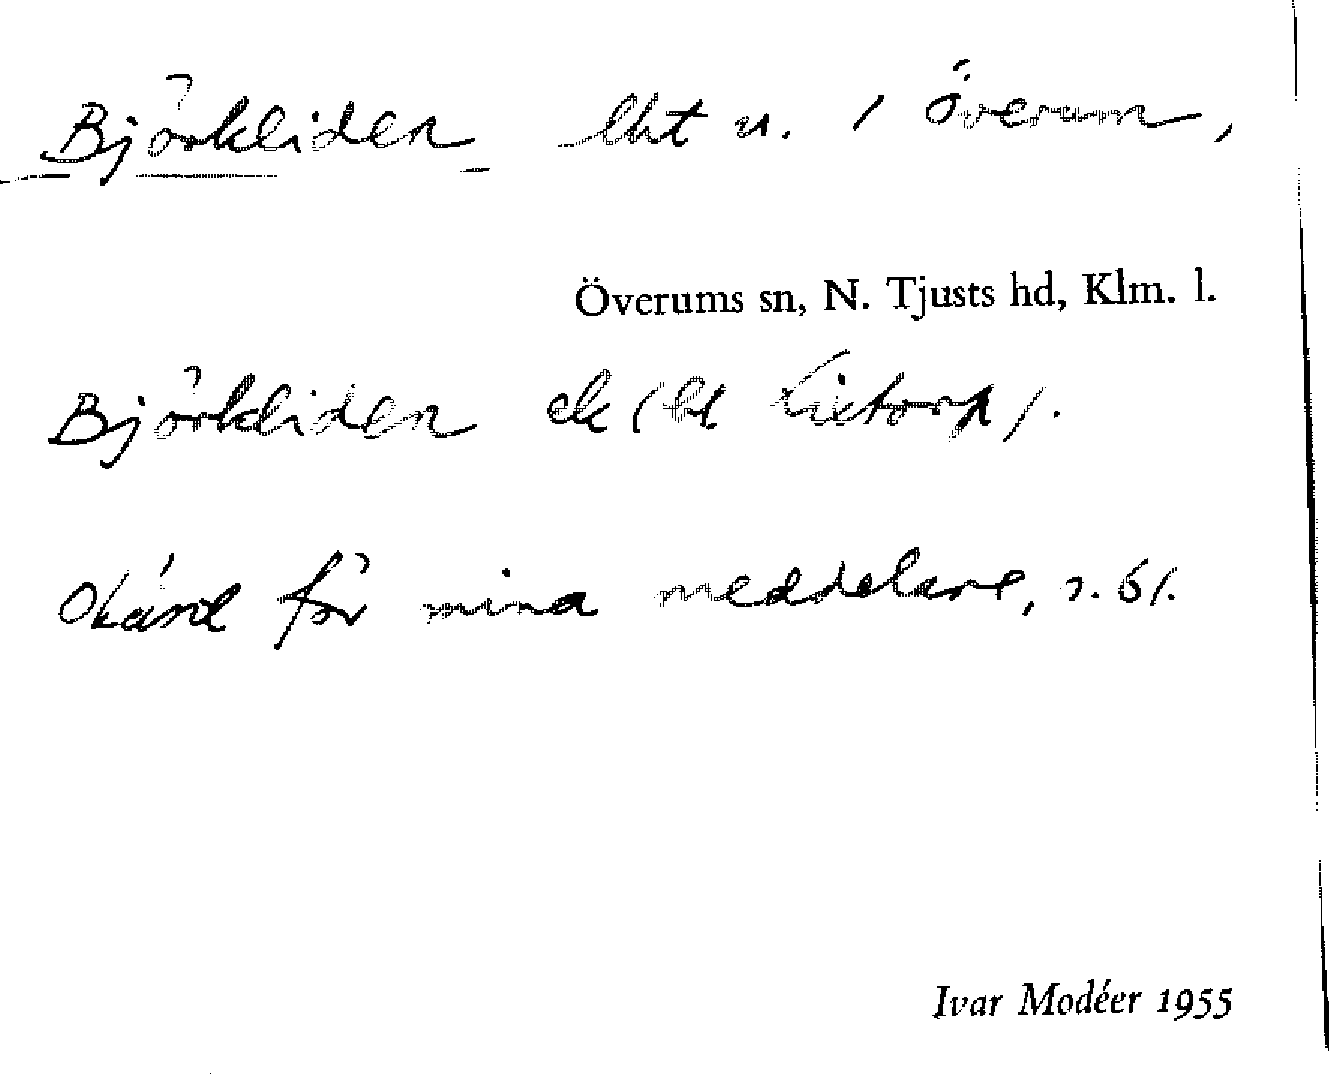 Björkliden lht u. / Överum,
Överums sn, N. Tjusts hd, Klm. l.
Björkliden ek (bl
Okänt för mina meddelare,
Ivar Modéer 1955